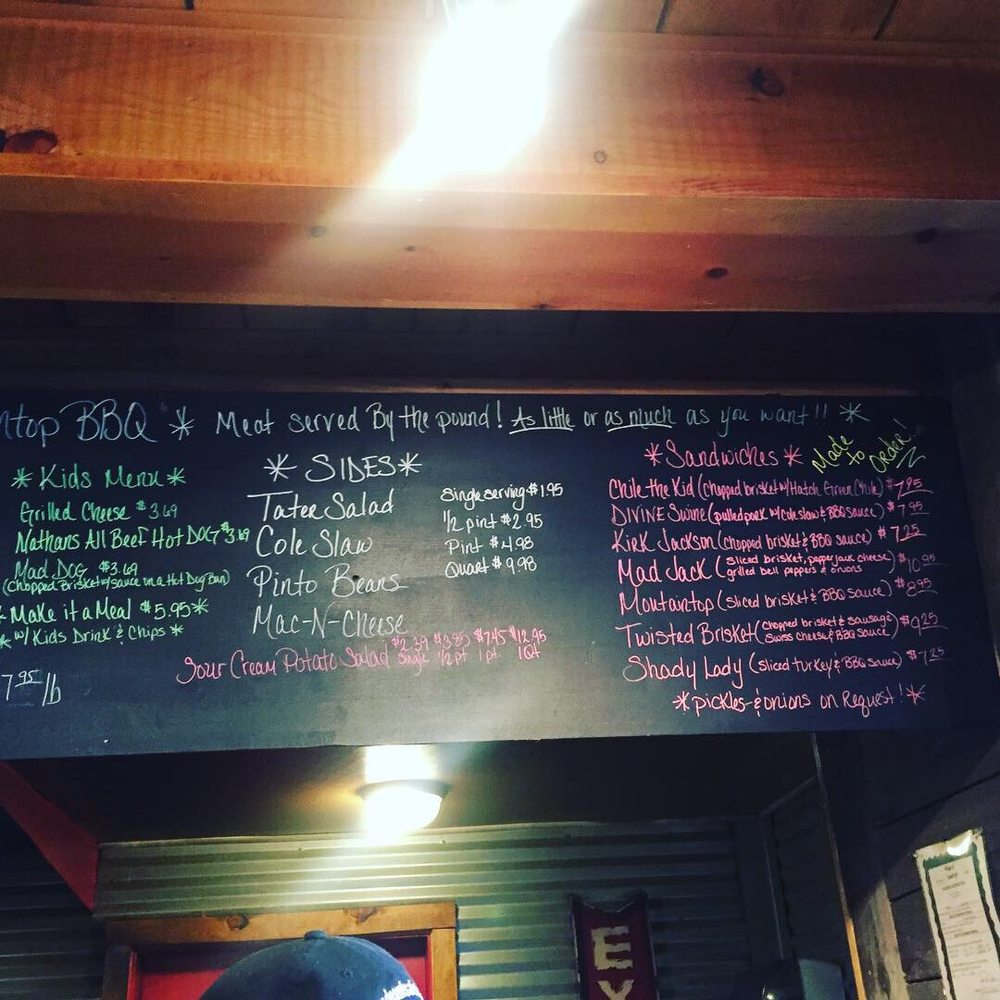 ntop BBQ * Meat served By the pound! As little or as much as you want!! *
*Kids Menu*
Grilled Cheese $3.69
Nathans All Beef Hot DOG $3.69
Mad DOG $3.69
(Chopped Brisket w/sauce on a Hot Dog Bun)
*Make it a Meal $5.95*
*w/ Kids Drink & Chips*
7.95/lb
*SIDES*
Tater Salad
Cole Slaw
Pinto Beans
Mac-N-Cheese
Single serving $1.95
1/2 pint $2.95
Pint $4.98
Quart $9.98
Sour Cream Potato Salad $2.39 $3.85 $7.45 $12.95
Single 1/2 pt 1 pt. 1 Qt
*Sandwiches* Made to Order!
Chile the Kid (Chopped brisket w/Hatch Green Chile) $7.95
DIVINE Swine (pulled pork w/ Cole slaw & BBQ sauce) $7.95
Kirk Jackson (chopped brisket & BBQ sauce) $7.25
Mad Jack (sliced brisket, pepperjack cheese, grilled bell peppers & onions) $10.95
Moutaintop (sliced brisket & BBQ sauce) $8.95
Twisted Brisket (Chopped brisket & sausage Swiss cheese & BBQ sauce) $9.25
Shady Lady (sliced turkey & BBQ sauce) $7.25
*pickles & onions on Request!*
EY